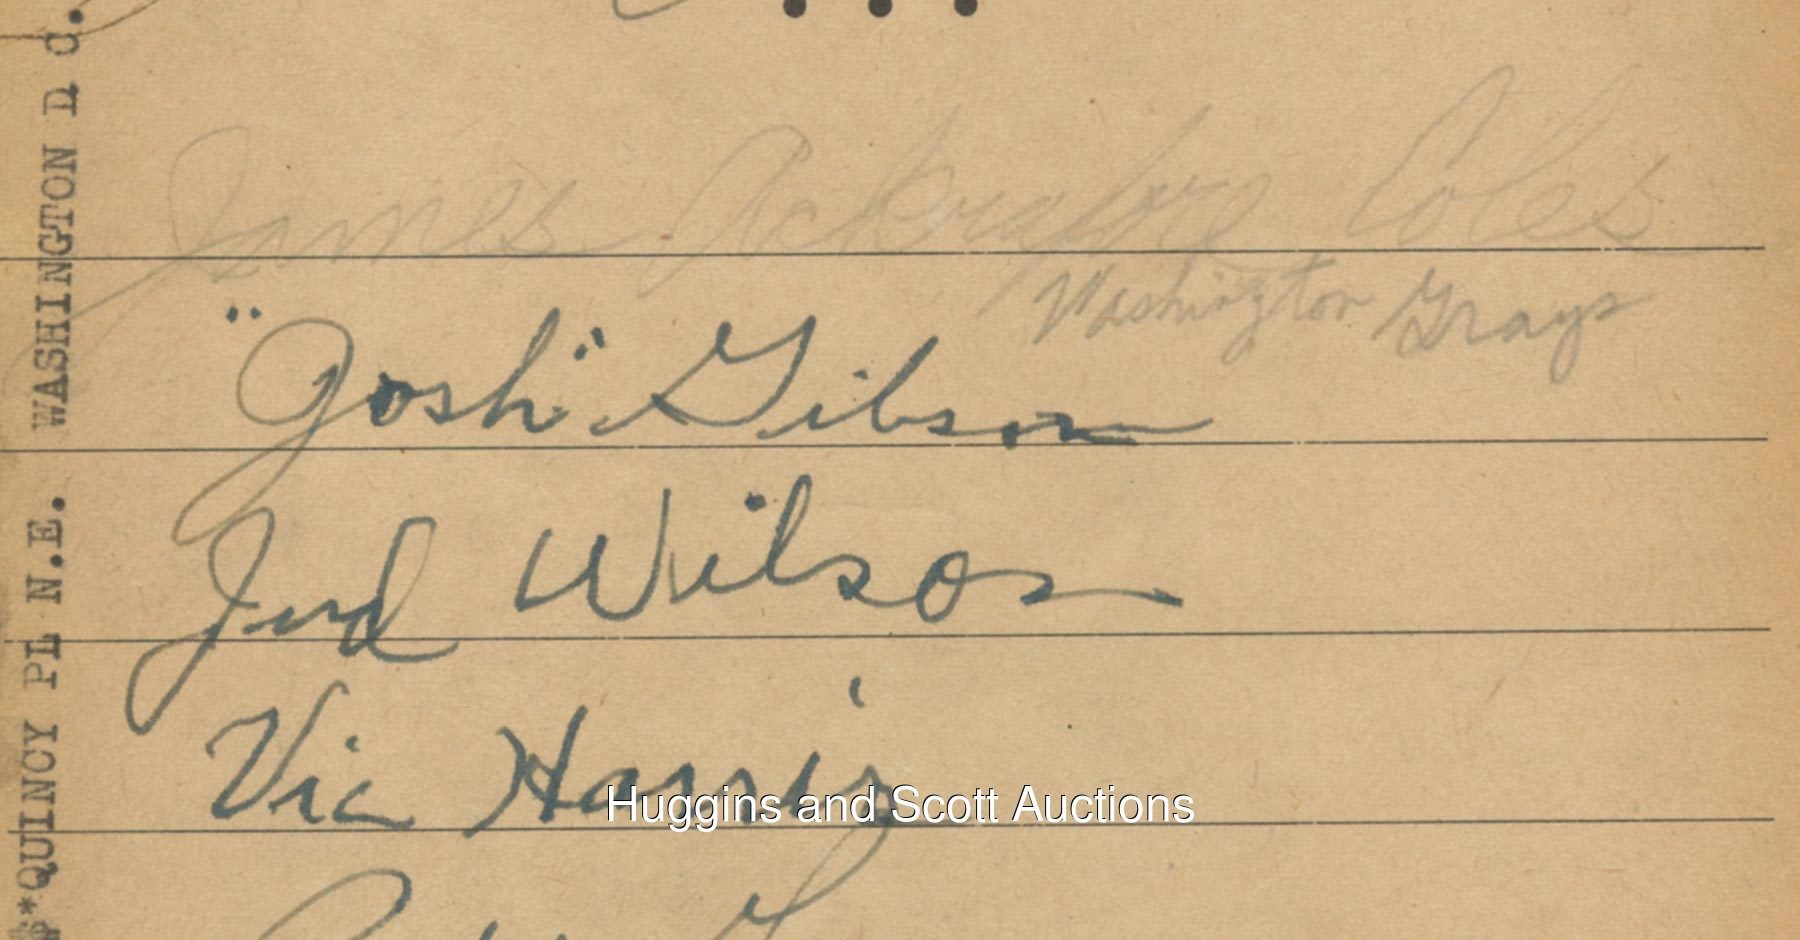 James Cole
Washington Grays
"Josh" Gibson
Jud Wilson
Vic Harris
Huggins and Scott Auctions
*QUINCY PL N.E. WASHINGTON D C.